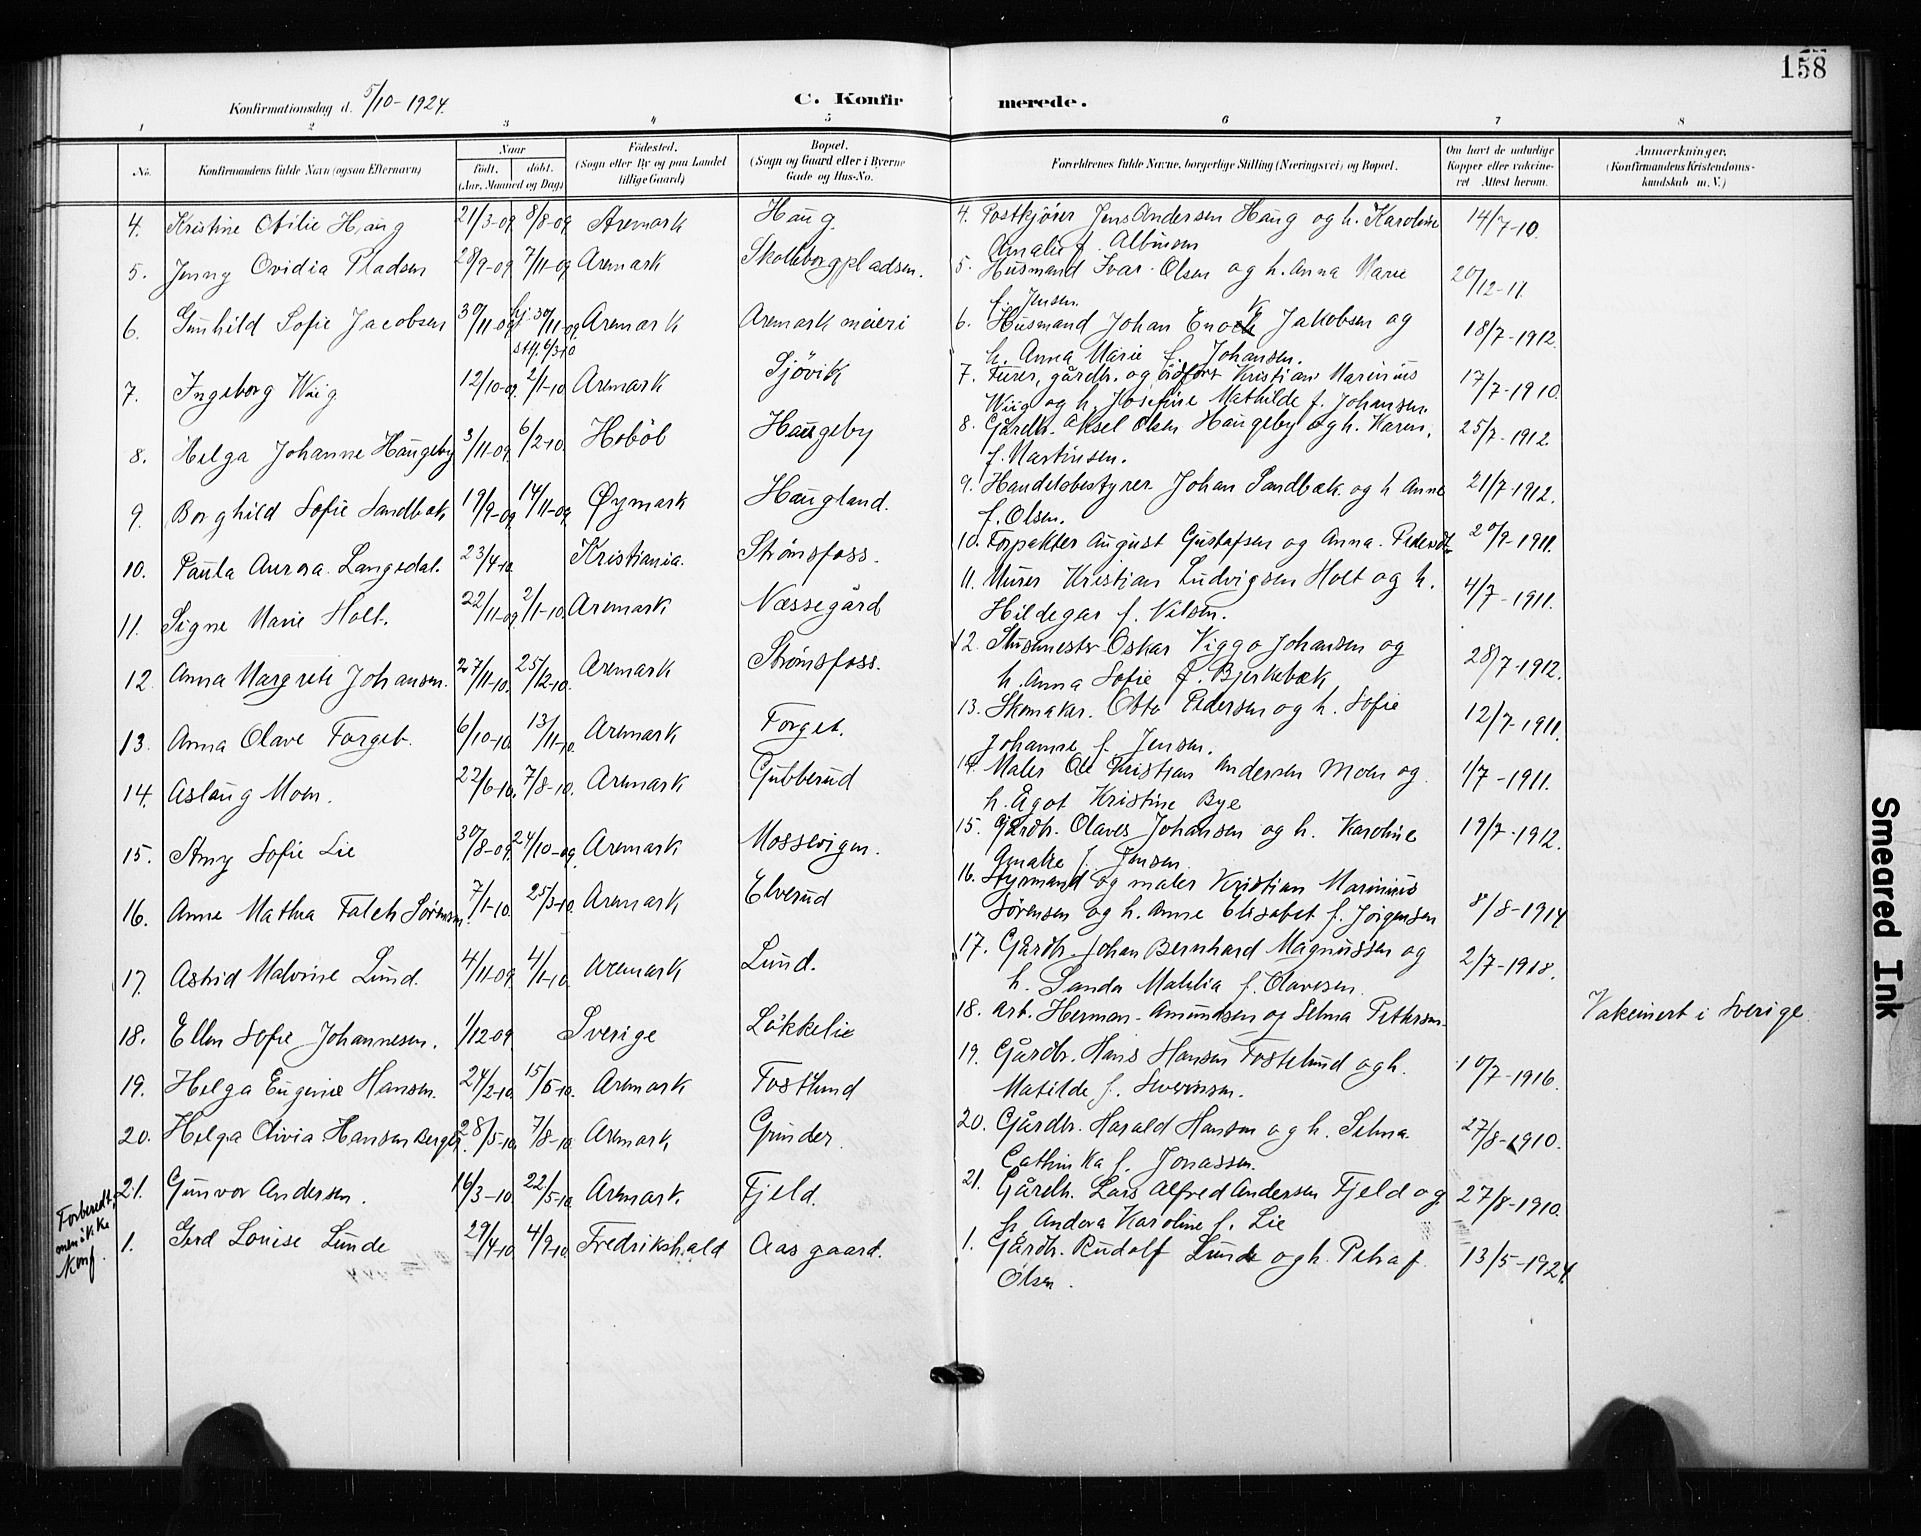 158
Konfirmationsdag d. 5/10-1924.
C. Konfirmerede.
1 2 3 4 5 6 7 8
No. Konfirmandens fulde Navn (ogsaa Efternavn) Naar født. døbt. (Aar, Maaned og Dag) Fødested. (Sogn eller By og paa Landet tillige Gaard) Bopæl. (Sogn og Gaard eller i Byerne Gade og Hus-No. Forældrenes fulde Navne, borgerlige Stilling (Næringsvei) og Bopæl. Om havt de naturlige Kopper eller vakcineret. Attest herom. Anmærkninger. (Konfirmandens Kristendomskundskab m. V.)
4. Kristine Otilie Haug 21/3-09 8/8-09 Aremark Haug. 4. Postkjører Jens Andersen Haug og h. Karoline 14/7-10.
Amalie f. Albinsen
5. Jenny Ovidia Pladsen 28/9-09 7/11-09 Aremark Skolleborgpladsen. 5. Husmand Ivar Olsen og h. Anna Marie 20/12-11.
f. Jensen.
6. Gunhild Sofie Jacobsen 30/11-09 hj. 30/11-09 stf. 6/3-10 Aremark Aremark meieri 6. Husmand Johan Enock Jakobsen og 18/7-1912.
h. Anna Marie f. Johansen.
7. Ingeborg Wiig 12/10-09 2/1-10 Aremark Sjövik 7. Furer, gårdbr. og Kristian Marinius 17/7-1910.
Wiig og h. Josefine Mathilde f. Johansen.
8. Helga Johanne Haugeby 3/11-09. 6/2-10. Hobøl Haugeby 8. Gårdbr. Aksel Olsen Haugeby og h. Karen, 25/7-1912.
f. Martinsen.
9. Borghild Sofie Sandbæk 19/9-09 14/11-09 Øymark Haugland. 9. Handelsbestyrer Johan Sandbæk og h Anne 21/7-1912.
f. Olsen.
10. Paula Aurora Langsdal. 23/4-10. Kristiania. Strømsfoss. 10. Forpakter August Gustafsen og Anna 20/9-1911.
11. Signe Marie Holt. 22/11-09. 2/1-10. Aremark Næssegård 11. Murer Kristian Ludvigsen Holt og h. 4/7-1911.
Hildegar f. Nilsen.
12. Anna Margrete Johansen. 27/11-10. 25/12-10. Aremark Strømsfoss. 12. Slusemester Oskar Viggo Johansen og 28/7-1912.
h. Anna Sofie f. Bjerkebæk
13. Anna Olave Torget. 6/10-10. 13/11-10 Aremark Torget. 13. Skomaker. Otto Pedersen og h. Sofie 12/7-1911.
Johanne f. Jensen.
14. Aslaug Moen. 22/6-10. 7/8-10. Aremark Gubberud 14. Maler Ole Kristian Andersen Moen og 1/7-1911.
h. Ågot Kristine Bye
15. Amy Sofie Lie 30/8-09. 24/10-09. Aremark Mossevigen. 15. Gårdbr. Olaves Johansen og h. Karoline 19/7-1912.
Amalie f. Jensen.
16. Anne Mathea Falch Sørensen 7/1-10. 25/3-10. Aremark Elverud 16. Styrmand og maler Kristian Marinius 8/8-1914
Sørensen og h. Anne Elisabet f. Jörgensen
17. Astrid Malvine Lund. 4/11-09. 4/1-10. Aremark Lund. 17. Gårdbr. Johan Bernhard Magnussen og 2/7-1918.
h. Sanda Mathlia f. Olavesen.
18. Ellen Sofie Johannesen. 1/12-09. Sverige Løkkelie 18. Arb. Herman Amundsen og Selma Pettersen. Vakcinert i Sverige.
19. Helga Eugenie Hansen. 24/2-10. 15/5-10. Aremark Tostlund 19. Gårdbr. Hans Hansen Tostelund og h. 10/7-1916.
Matilde f. Severinsen.
20. Helga Olivia Hansen Berger 28/5-10 7/8-10. Aremark Grinder. 20. Gårdbr. Harald Hansen og h. Selma 27/8-1910.
Cathinka f. Jonassen.
21. Gunvor Andersen. 16/3-10 22/5-10. Aremark. Fjeld. 21. Gårdb. Lars Alfred Andersen Fjeld og 27/8-1910.
h. Andera Karoline f. Lie
Forberedt, men ikke konf.
1. Gerd Louise Lunde 29/4-10 4/9-10 Fredrikshald Aasgaard. 1. Gårdbr. Rudolf Lunde og h. Petra f. 13/5-1924.
Olsen.
Smeared Ink